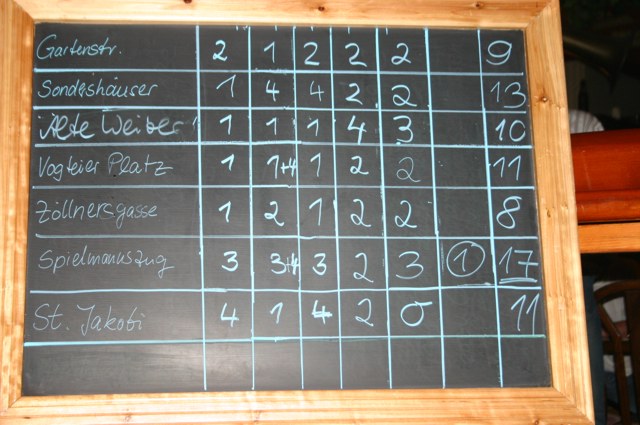 Gartenstr. 2 1 2 2 2 9
Sondershäuser 1 4 4 2 2 13
Alte Weiber 1 1 1 4 3 10
Vogteier Platz 1 1+4 1 2 2 11
Zöllnersgasse 1 2 1 2 2 8
Spielmannszug 3 3+4 3 2 3 1 17
St. Jakobi 4 1 4 2 0 11